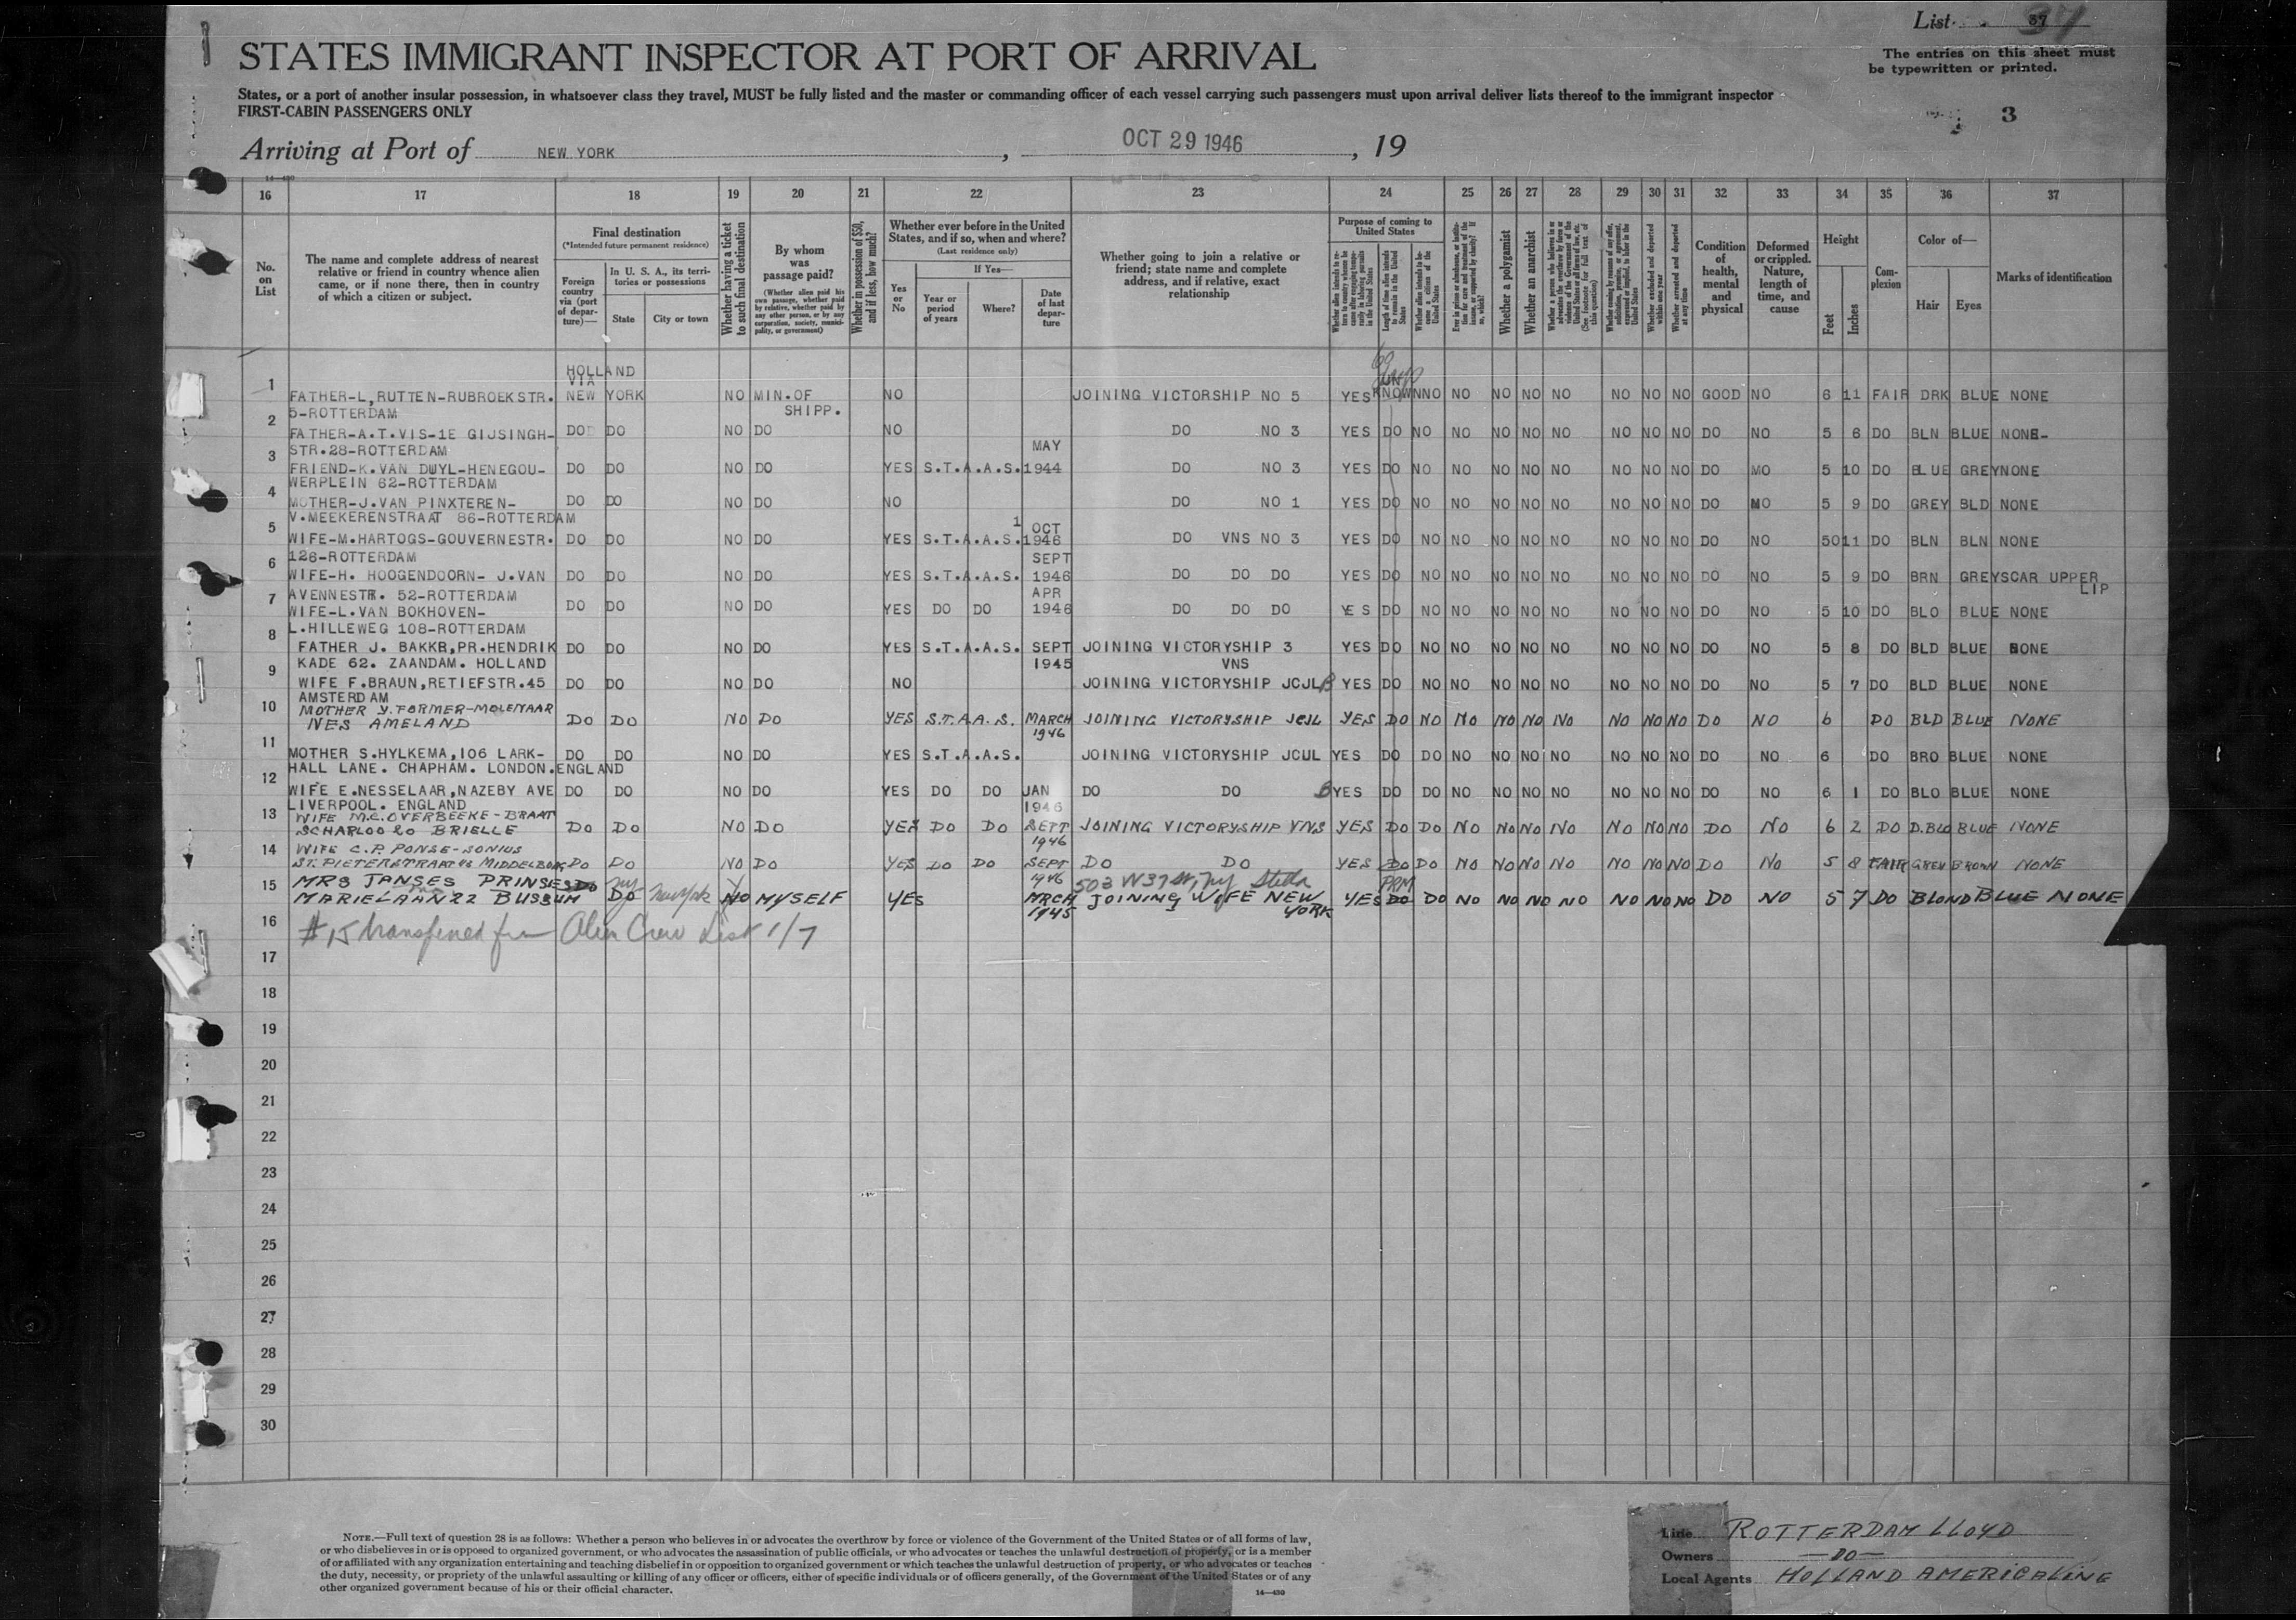 List 37
STATES IMMIGRANT INSPECTOR AT PORT OF ARRIVAL
The entries on this sheet must
be typewritten or printed.
States, or a port of another insular possession, in whatsoever class they travel, MUST be fully listed and the master or commanding officer of each vessel carrying such passengers must upon arrival deliver lists thereof to the immigrant inspector
FIRST-CABIN PASSENGERS ONLY
3
Arriving at Port of NEW YORK , OCT 29 1946 , 19
14—430
16 17 18 19 20 21 22 23 24 25 26 27 28 29 30 31 32 33 34 35 36 37
No. on List
The name and complete address of nearest
relative or friend in country whence alien
came, or if none there, then in country
of which a citizen or subject.
Final destination
(*Intended future permanent residence)
Foreign country via (port of departure)—
In U. S. A., its territories or possessions
State
City or town
Whether having a ticket to such final destination
By whom was passage paid?
(Whether alien paid his own passage, whether paid by relative, whether paid by any other person, or by any corporation, society, municipality, or government)
Whether in possession of $50, and if less, how much?
Whether ever before in the United States, and if so, when and where?
(Last residence only)
Yes or No
If Yes—
Year or period of years
Where?
Date of last departure
Whether going to join a relative or
friend; state name and complete
address, and if relative, exact
relationship
Purpose of coming to United States
Length of time alien intends to remain in the United States
Whether alien intends to become a citizen of the United States
Whether a polygamist
Whether an anarchist
Whether excluded and deported within one year
Whether arrested and deported at any time
Condition of health, mental and physical
Deformed or crippled. Nature, length of time, and cause
Height
Feet
Inches
Complexion
Color of—
Hair
Eyes
Marks of identification
HOLLAND
VIA
1 FATHER-L,RUTTEN-RUBROEKSTR. NEW YORK NO MIN.OF SHIPP. NO JOINING VICTORSHIP NO 5 YES UNKNOWN NO NO NO NO NO NO NO NO GOOD NO 6 11 FAIR DRK BLUE NONE
5-ROTTERDAM
2 FATHER-A.T.VIS-1E GIJSINGH- DO DO NO DO NO DO NO 3 YES DO NO NO NO NO NO NO NO NO DO NO 5 6 DO BLN BLUE NONE-
STR.28-ROTTERDAM
3 FRIEND-K.VAN DUYL-HENEGOU- DO DO NO DO YES S.T.A.A.S. MAY 1944 DO NO 3 YES DO NO NO NO NO NO NO NO NO DO MO 5 10 DO BLUE GREY NONE
WERPLEIN 62-ROTTERDAM
4 MOTHER-J.VAN PINXTEREN- DO DO NO DO NO DO NO 1 YES DO NO NO NO NO NO NO NO NO DO NO 5 9 DO GREY BLD NONE
V.MEEKERENSTRAAT 86-ROTTERDAM
5 WIFE-M.HARTOGS-GOUVERNESTR. DO DO NO DO YES S.T.A.A.S. 1 OCT 1946 DO VNS NO 3 YES DO NO NO NO NO NO NO NO NO DO NO 5011 DO BLN BLN NONE
126-ROTTERDAM
6 WIFE-H. HOOGENDOORN- J.VAN DO DO NO DO YES S.T.A.A.S. SEPT 1946 DO DO DO YES DO NO NO NO NO NO NO NO NO DO NO 5 9 DO BRN GREY SCAR UPPER LIP
AVENNESTR. 52-ROTTERDAM
7 WIFE-L.VAN BOKHOVEN- DO DO NO DO YES DO DO APR 1946 DO DO DO YES DO NO NO NO NO NO NO NO NO DO NO 5 10 DO BLO BLUE NONE
L.HILLEWEG 108-ROTTERDAM
8 FATHER J. BAKKR,PR.HENDRIK DO DO NO DO YES S.T.A.A.S. SEPT 1945 JOINING VICTORYSHIP 3 VNS YES DO NO NO NO NO NO NO NO NO DO NO 5 8 DO BLD BLUE NONE
KADE 62. ZAANDAM. HOLLAND
9 WIFE F.BRAUN,RETIEFSTR.45 DO DO NO DO NO JOINING VICTORYSHIP JCJLB YES DO NO NO NO NO NO NO NO NO DO NO 5 7 DO BLD BLUE NONE
AMSTERDAM
10 MOTHER Y.FORMER-MOLENAAR
NES AMELAND DO DO NO DO YES S.T.A.A.S. MARCH 1946 JOINING VICTORYSHIP JCJL YES DO NO NO NO NO NO NO NO NO DO NO 6 DO BLD BLUE NONE
11 MOTHER S.HYLKEMA,106 LARK- DO DO NO DO YES S.T.A.A.S. JOINING VICTORYSHIP JCUL YES DO DO NO NO NO NO NO NO NO DO NO 6 DO BRO BLUE NONE
HALL LANE. CHAPHAM. LONDON.ENGLAND
12 WIFE E.NESSELAAR,NAZEBY AVE DO DO NO DO YES DO DO JAN 1946 DO DO B YES DO DO NO NO NO NO NO NO NO DO NO 6 1 DO BLO BLUE NONE
LIVERPOOL. ENGLAND
13 WIFE M.C.OVERBEEKE-BRAAT
SCHARLOO 20 BRIELLE DO DO NO DO YES DO DO SETT 1946 JOINING VICTORYSHIP VNS YES DO DO NO NO NO NO NO NO NO DO NO 6 2 DO D.BLO BLUE NONE
14 WIFE C.P. PONSE-SONIUS
ST. PIETERSTRAAT 48 MIDDELBURG DO DO NO DO YES DO DO SEPT 1946 DO DO YES DO DO NO NO NO NO NO NO NO DO NO 5 8 FAIR GREY BROWN NONE
15 MRS JANSES PRINSES DO NY 503 W 37 St, NY Stella PRM
MARIELAAN 22 BUSSUM DO New York NO MYSELF YES MRCH 1945 JOINING WIFE NEW YORK YES DO DO NO NO NO NO NO NO NO DO NO 5 7 DO BLOND BLUE NONE
16 #15 transferred from Alien Crew List 1/7
17
18
19
20
21
22
23
24
25
26
27
28
29
30
NOTE.—Full text of question 28 is as follows: Whether a person who believes in or advocates the overthrow by force or violence of the Government of the United States or of all forms of law,
or who disbelieves in or is opposed to organized government, or who advocates the assassination of public officials, or who advocates or teaches the unlawful destruction of property, or is a member
of or affiliated with any organization entertaining and teaching disbelief in or opposition to organized government or which teaches the unlawful destruction of property, or who advocates or teaches
the duty, necessity, or propriety of the unlawful assaulting or killing of any officer or officers, either of specific individuals or of officers generally, of the Government of the United States or of any
other organized government because of his or their official character.
14—430
Line ROTTERDAM LLOYD
Owners —DO—
Local Agents HOLLAND AMERICA LINE